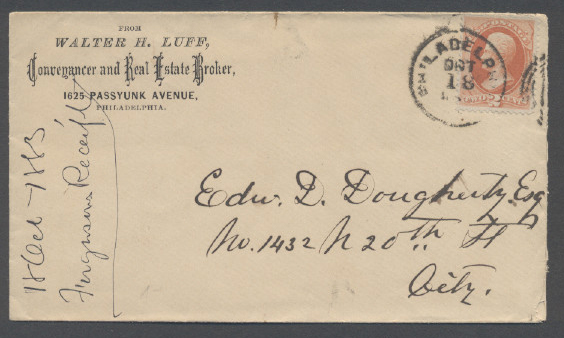 FROM
WALTER H. LUFF,
Conveyancer and Real Estate Broker,
1625 PASSYUNK AVENUE,
PHILADELPHIA.
PHILADELPH
OCT
18
Edw. D. Dougherty Esq
No. 1432 N 20th St
City.
18 Oct
Fergusons Receipt